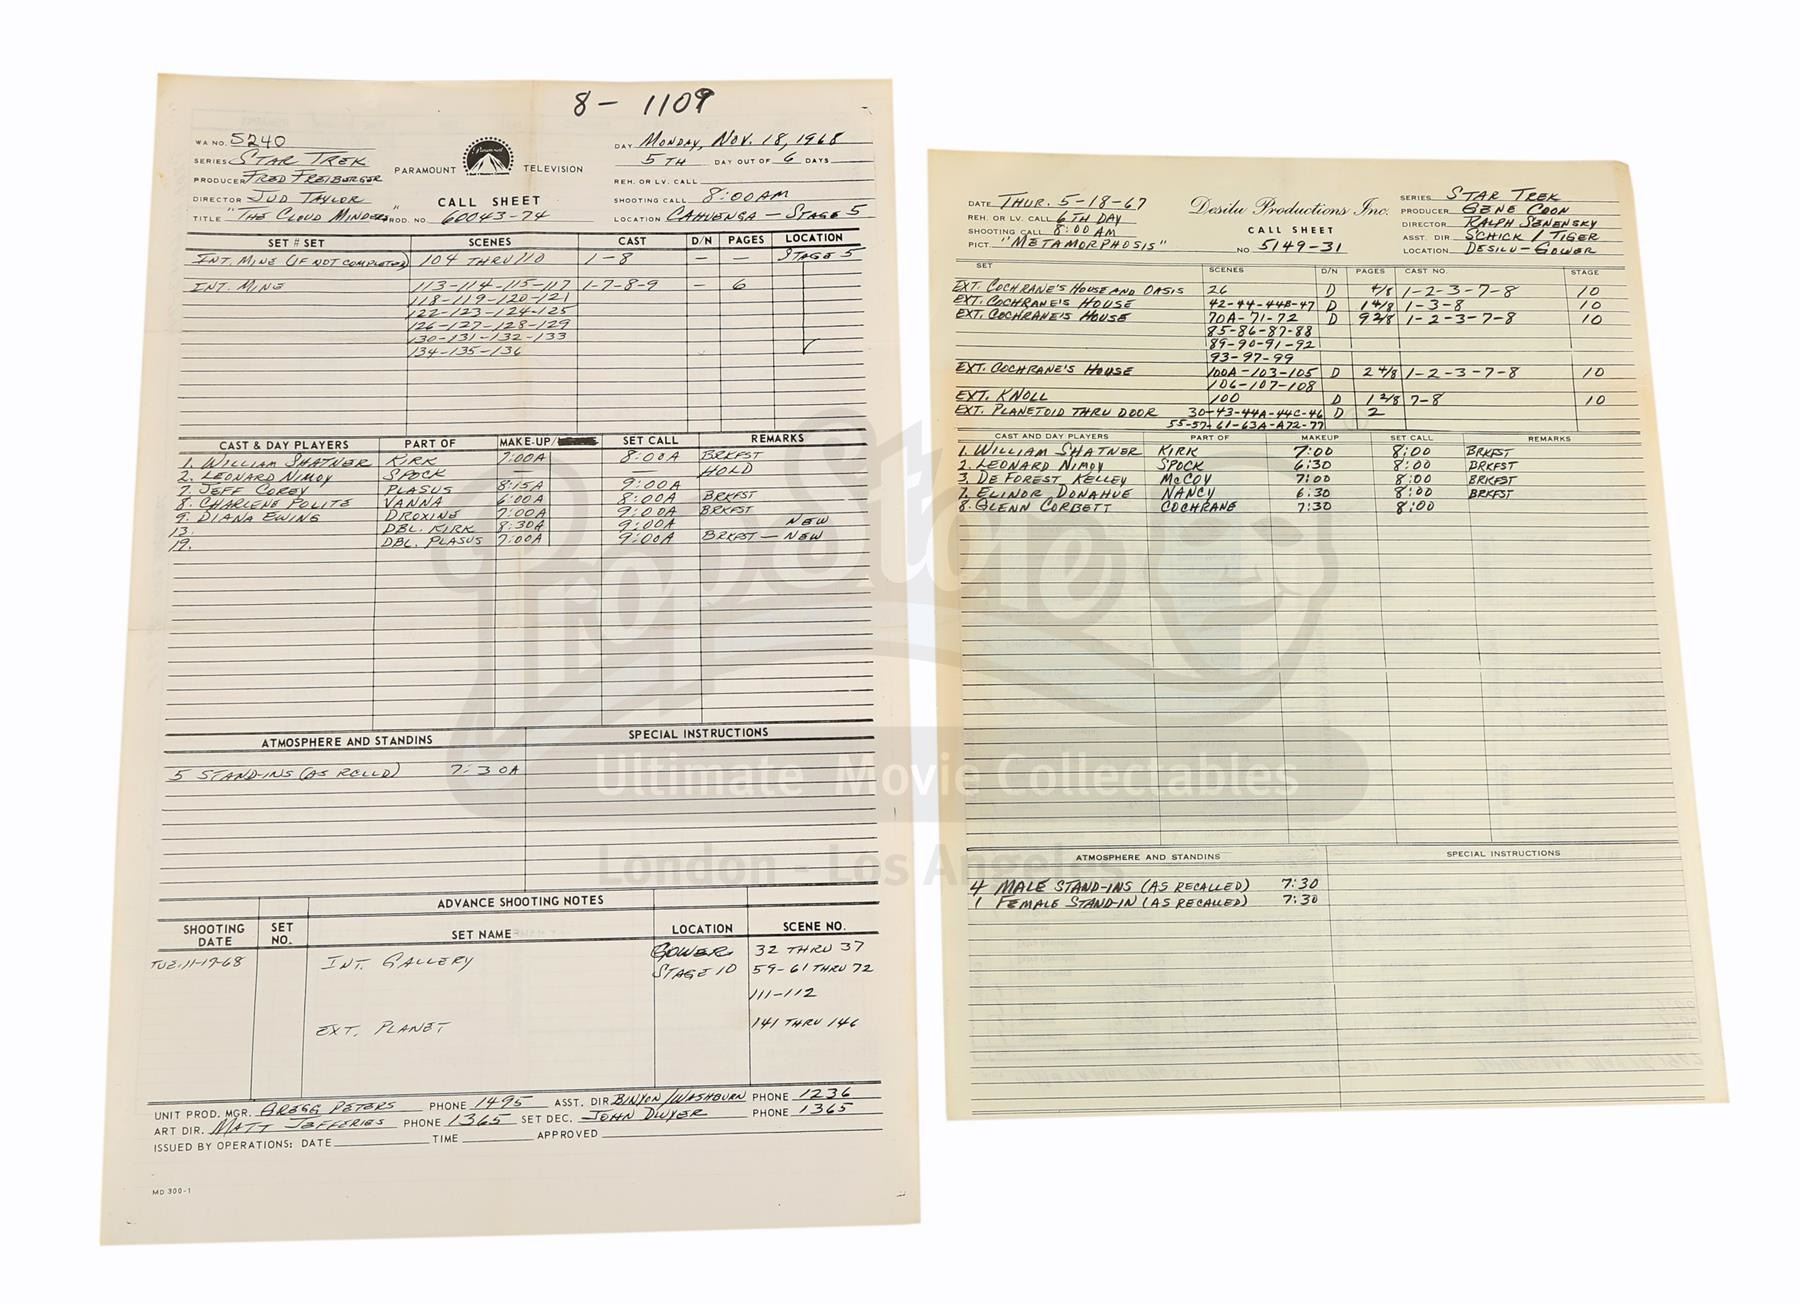 8 - 1109
WA NO. 5240
SERIES STAR TREK
PRODUCER FRED FREIBERGER
DIRECTOR JUD TAYLOR
TITLE "THE CLOUD MINDERS" PROD. NO. 60043-74
PARAMOUNT Paramount TELEVISION
CALL SHEET
DAY MONDAY, NOV. 18, 1968
5TH DAY OUT OF 6 DAYS
REH. OR LV. CALL
SHOOTING CALL 8:00AM
LOCATION CAHUENGA - STAGE 5
SET # SET SCENES CAST D/N PAGES LOCATION
INT. MINE (IF NOT COMPLETED) 104 THRU 110 1-8 — — STAGE 5
INT. MINE 113-114-115-117 1-7-8-9 - 6
118-119-120-121
122-123-124-125
126-127-128-129
130-131-132-133
134-135-136
CAST & DAY PLAYERS PART OF MAKE-UP/ SET CALL REMARKS
1. WILLIAM SHATNER KIRK 7:00A 8:00A BRKFST
2. LEONARD NIMOY SPOCK — — HOLD
7. JEFF COREY PLASUS 8:15A 9:00A
8. CHARLENE POLITE VANNA 6:00A 8:00A BRKFST
9. DIANA EWING DROXINE 7:00A 9:00A BRKFST
13. DBL. KIRK 8:30A 9:00A NEW
19. DBL. PLASUS 7:00A 9:00A BRKFST - NEW
ATMOSPHERE AND STANDINS SPECIAL INSTRUCTIONS
5 STAND-INS (AS RCLLD) 7:30A
ADVANCE SHOOTING NOTES
SHOOTING DATE SET NO. SET NAME LOCATION SCENE NO.
TUE. 11-19-68 INT. GALLERY GOWER 32 THRU 37
STAGE 10 59-61 THRU 72
111-112
EXT. PLANET 141 THRU 146
UNIT PROD. MGR. GREGG PETERS PHONE 1495 ASST. DIR BINYON/WASHBURN PHONE 1236
ART DIR. MATT JEFFERIES PHONE 1365 SET DEC. JOHN DWYER PHONE 1365
ISSUED BY OPERATIONS: DATE TIME APPROVED
MD 300-1
DATE THUR. 5-18-67
REH. OR LV. CALL 6TH DAY
SHOOTING CALL 8:00 AM
PICT. "METAMORPHOSIS"
Desilu Productions Inc.
CALL SHEET
NO 5149-31
SERIES STAR TREK
PRODUCER GENE COON
DIRECTOR RALPH SENENSKY
ASST. DIR SCHICK / TIGER
LOCATION DESILU-GOWER
SET SCENES D/N PAGES CAST NO. STAGE
EXT. COCHRANE'S HOUSE AND OASIS 26 D 4/8 1-2-3-7-8 10
EXT. COCHRANE'S HOUSE 42-44-44B-47 D 1 4/8 1-3-8 10
EXT. COCHRANE'S HOUSE 70A-71-72 D 9 2/8 1-2-3-7-8 10
85-86-87-88
89-90-91-92
93-97-99
EXT. COCHRANE'S HOUSE 100A-103-105 D 2 4/8 1-2-3-7-8 10
106-107-108
EXT. KNOLL 100 D 1 2/8 7-8 10
EXT. PLANETOID THRU DOOR 30-43-44A-44C-46 D 2
55-57-61-63A-A72-77
CAST AND DAY PLAYERS PART OF MAKEUP SET CALL REMARKS
1. WILLIAM SHATNER KIRK 7:00 8:00 BRKFST
2. LEONARD NIMOY SPOCK 6:30 8:00 BRKFST
3. DE FOREST KELLEY McCOY 7:00 8:00 BRKFST
7. ELINOR DONAHUE NANCY 6:30 8:00 BRKFST
8. GLENN CORBETT COCHRANE 7:30 8:00
ATMOSPHERE AND STANDINS SPECIAL INSTRUCTIONS
4 MALE STAND-INS (AS RECALLED) 7:30
1 FEMALE STAND-IN (AS RECALLED) 7:30
PropStore
Ultimate Movie Collectables
London - Los Angeles